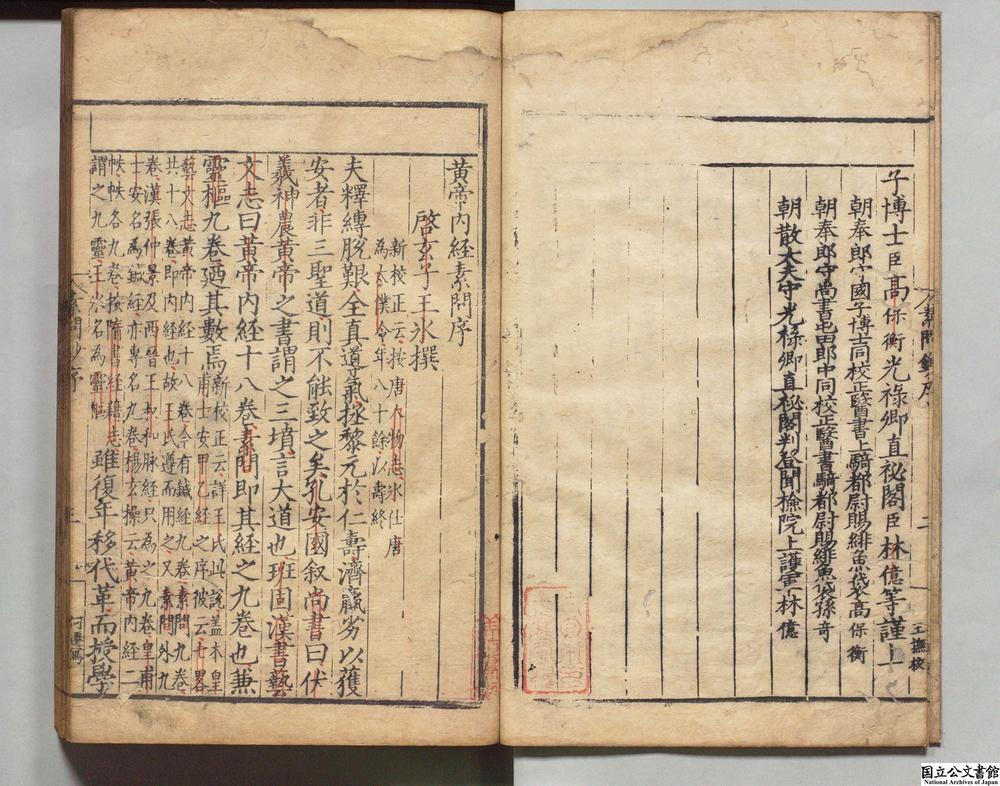 子博士臣高保衡光祿卿直祕閣臣林億等謹上
朝奉郎守國子博士同校正醫書上騎都尉賜緋魚袋高保衡
朝奉郎守尚書屯田郎中同校正醫書騎都尉賜緋魚袋孫奇
朝散大夫守光祿卿直祕閣判登聞檢院上護軍林億
王撫校
黄帝内经素問序
啓玄子王氷撰
新校正云按唐人物志氷仕唐
為太僕令年八十餘以壽終
夫釋縛脫艱全真導氣拯黎元於仁壽濟羸劣以獲
安者非三聖道則不能致之矣孔安國叙尚書曰伏
羲神農黄帝之書謂之三墳言大道也班固漢書藝
文志曰黄帝内经十八卷素問即其经之九卷也兼
靈樞九卷廼其數焉
新校正云詳王氏此說盖本皇
甫士安甲乙经之序彼云七畧
藝文志黄帝内经十八卷今有鍼经九卷素問九卷
共十八卷即内经也故王氏遵而用之又素問外九
卷漢張仲景及西晉王叔和脉经只為之九卷皇甫
士安名為鍼经亦專名九卷楊玄操云黄帝内经二
帙帙各九卷按隋書经籍志
謂之九靈王氷名為靈樞
雖復年移代革而授學
三
国立公文書館
National Archives of Japan